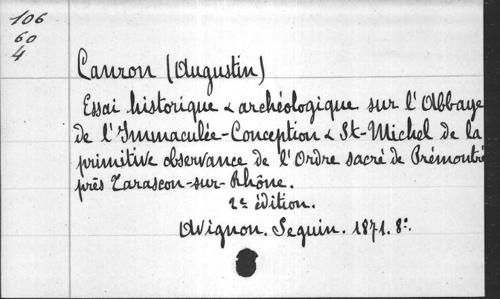 106
60
4
Canron (Augustin)
Essai historique & archéologique sur l'Abbaye
de l'Immaculée-Conception & St-Michel de la
primitive observance de l'Ordre sacré de Prémontré
près Tarascon-sur-Rhône.
2e édition.
Avignon. Seguin. 1871. 8º.